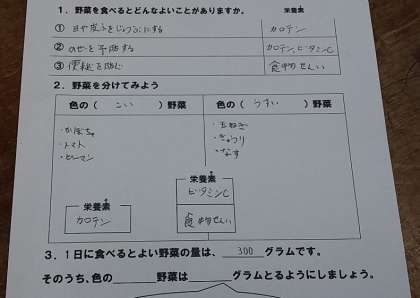 1．野菜を食べるとどんなよいことがありますか。 栄養素
① 目や皮ふをじょうぶにする カロテン
② かぜを予防する カロテン,ビタミンC
③ 便秘を防ぐ 食物せんい
2．野菜を分けてみよう
色の（ こい ）野菜 色の（ うすい ）野菜
・かぼちゃ ・玉ねぎ
・トマト ・きゅうり
・ピーマン ・なす
栄養素
ビタミンC
栄養素
カロテン 食物せんい
3．1日に食べるとよい野菜の量は、 300 グラムです。
そのうち、色の______野菜は______グラムとるようにしましょう。